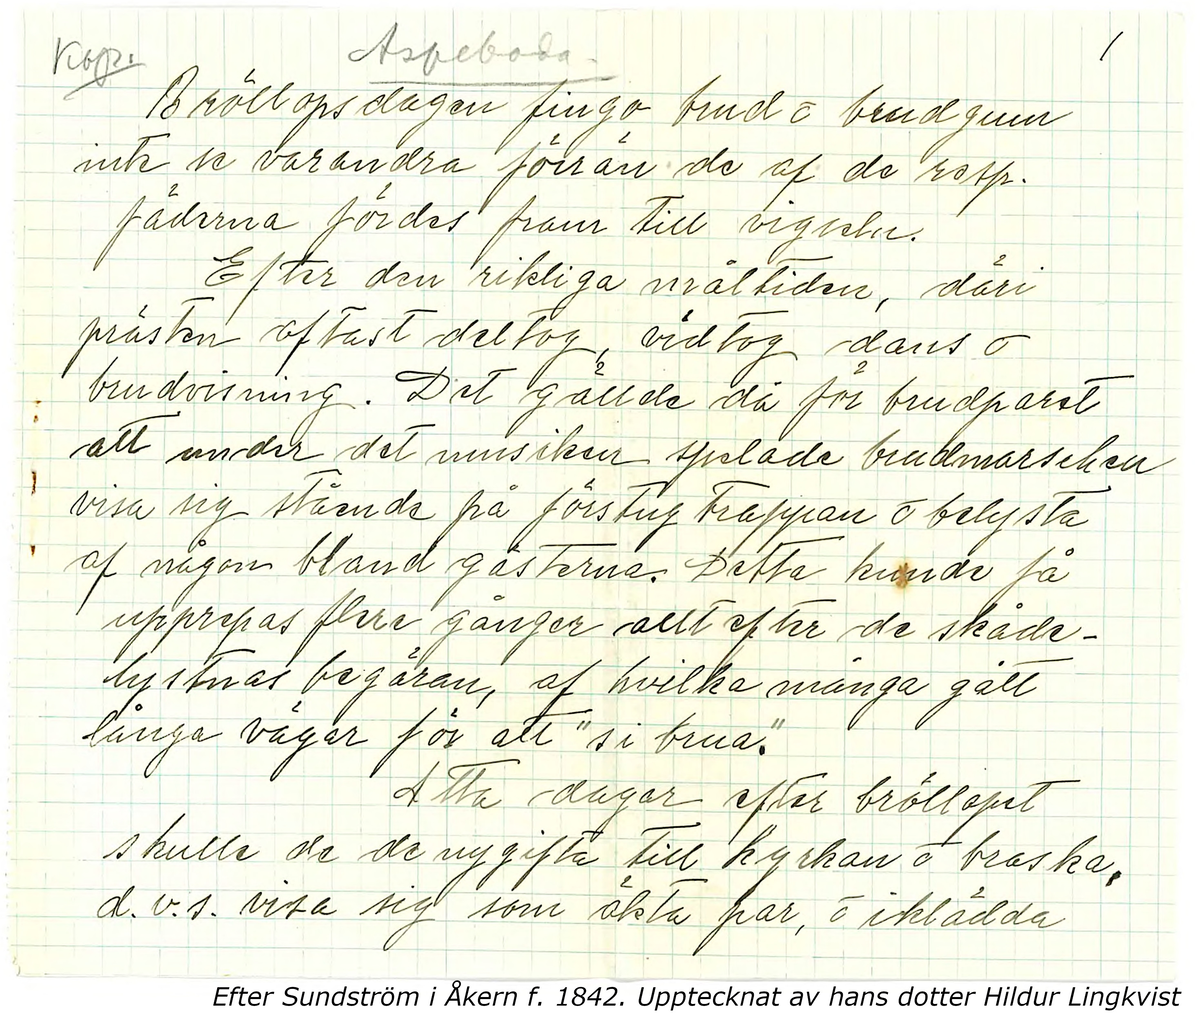 Kop.
Aspeboda
1
Bröllopsdagen fingo brud o brudgum
inte se varandra förrän de af de resp.
fäderna fördes fram till vigseln.
Efter den rikliga måltiden, däri
prästen oftast deltog, vidtog dans o
brudvisning. Det gällde då för brudparet
att under det musiken spelade brudmarschen
visa sig stående på förstugtrappan o belysta
af någon bland gästerna. Detta kunde få
upprepas flere gånger allt efter de skåde-
lystnas begäran, af hvilka många gått
långa vägar för att "si brua."
Åtta dagar efter bröllopet
skulle de de nygifta till kyrkan o braska,
d.v.s. visa sig som äkta par, o iklädda
Efter Sundström i Åkern f. 1842. Upptecknat av hans dotter Hildur Lingkvist